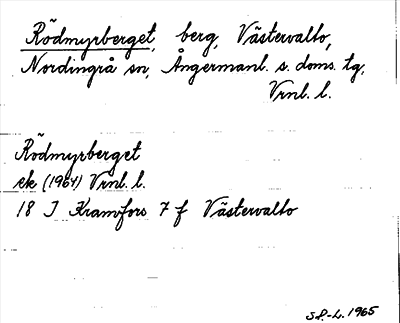 Rödmyrberget, berg, Västervallo,
Nordingrå sn, Ångermanl. s. doms. tg,
Vrnl. l.
Rödmyrberget
ek (1964) Vrnl. l.
18 J Kramfors 7 f Västervallo
S.P.-L. 1965